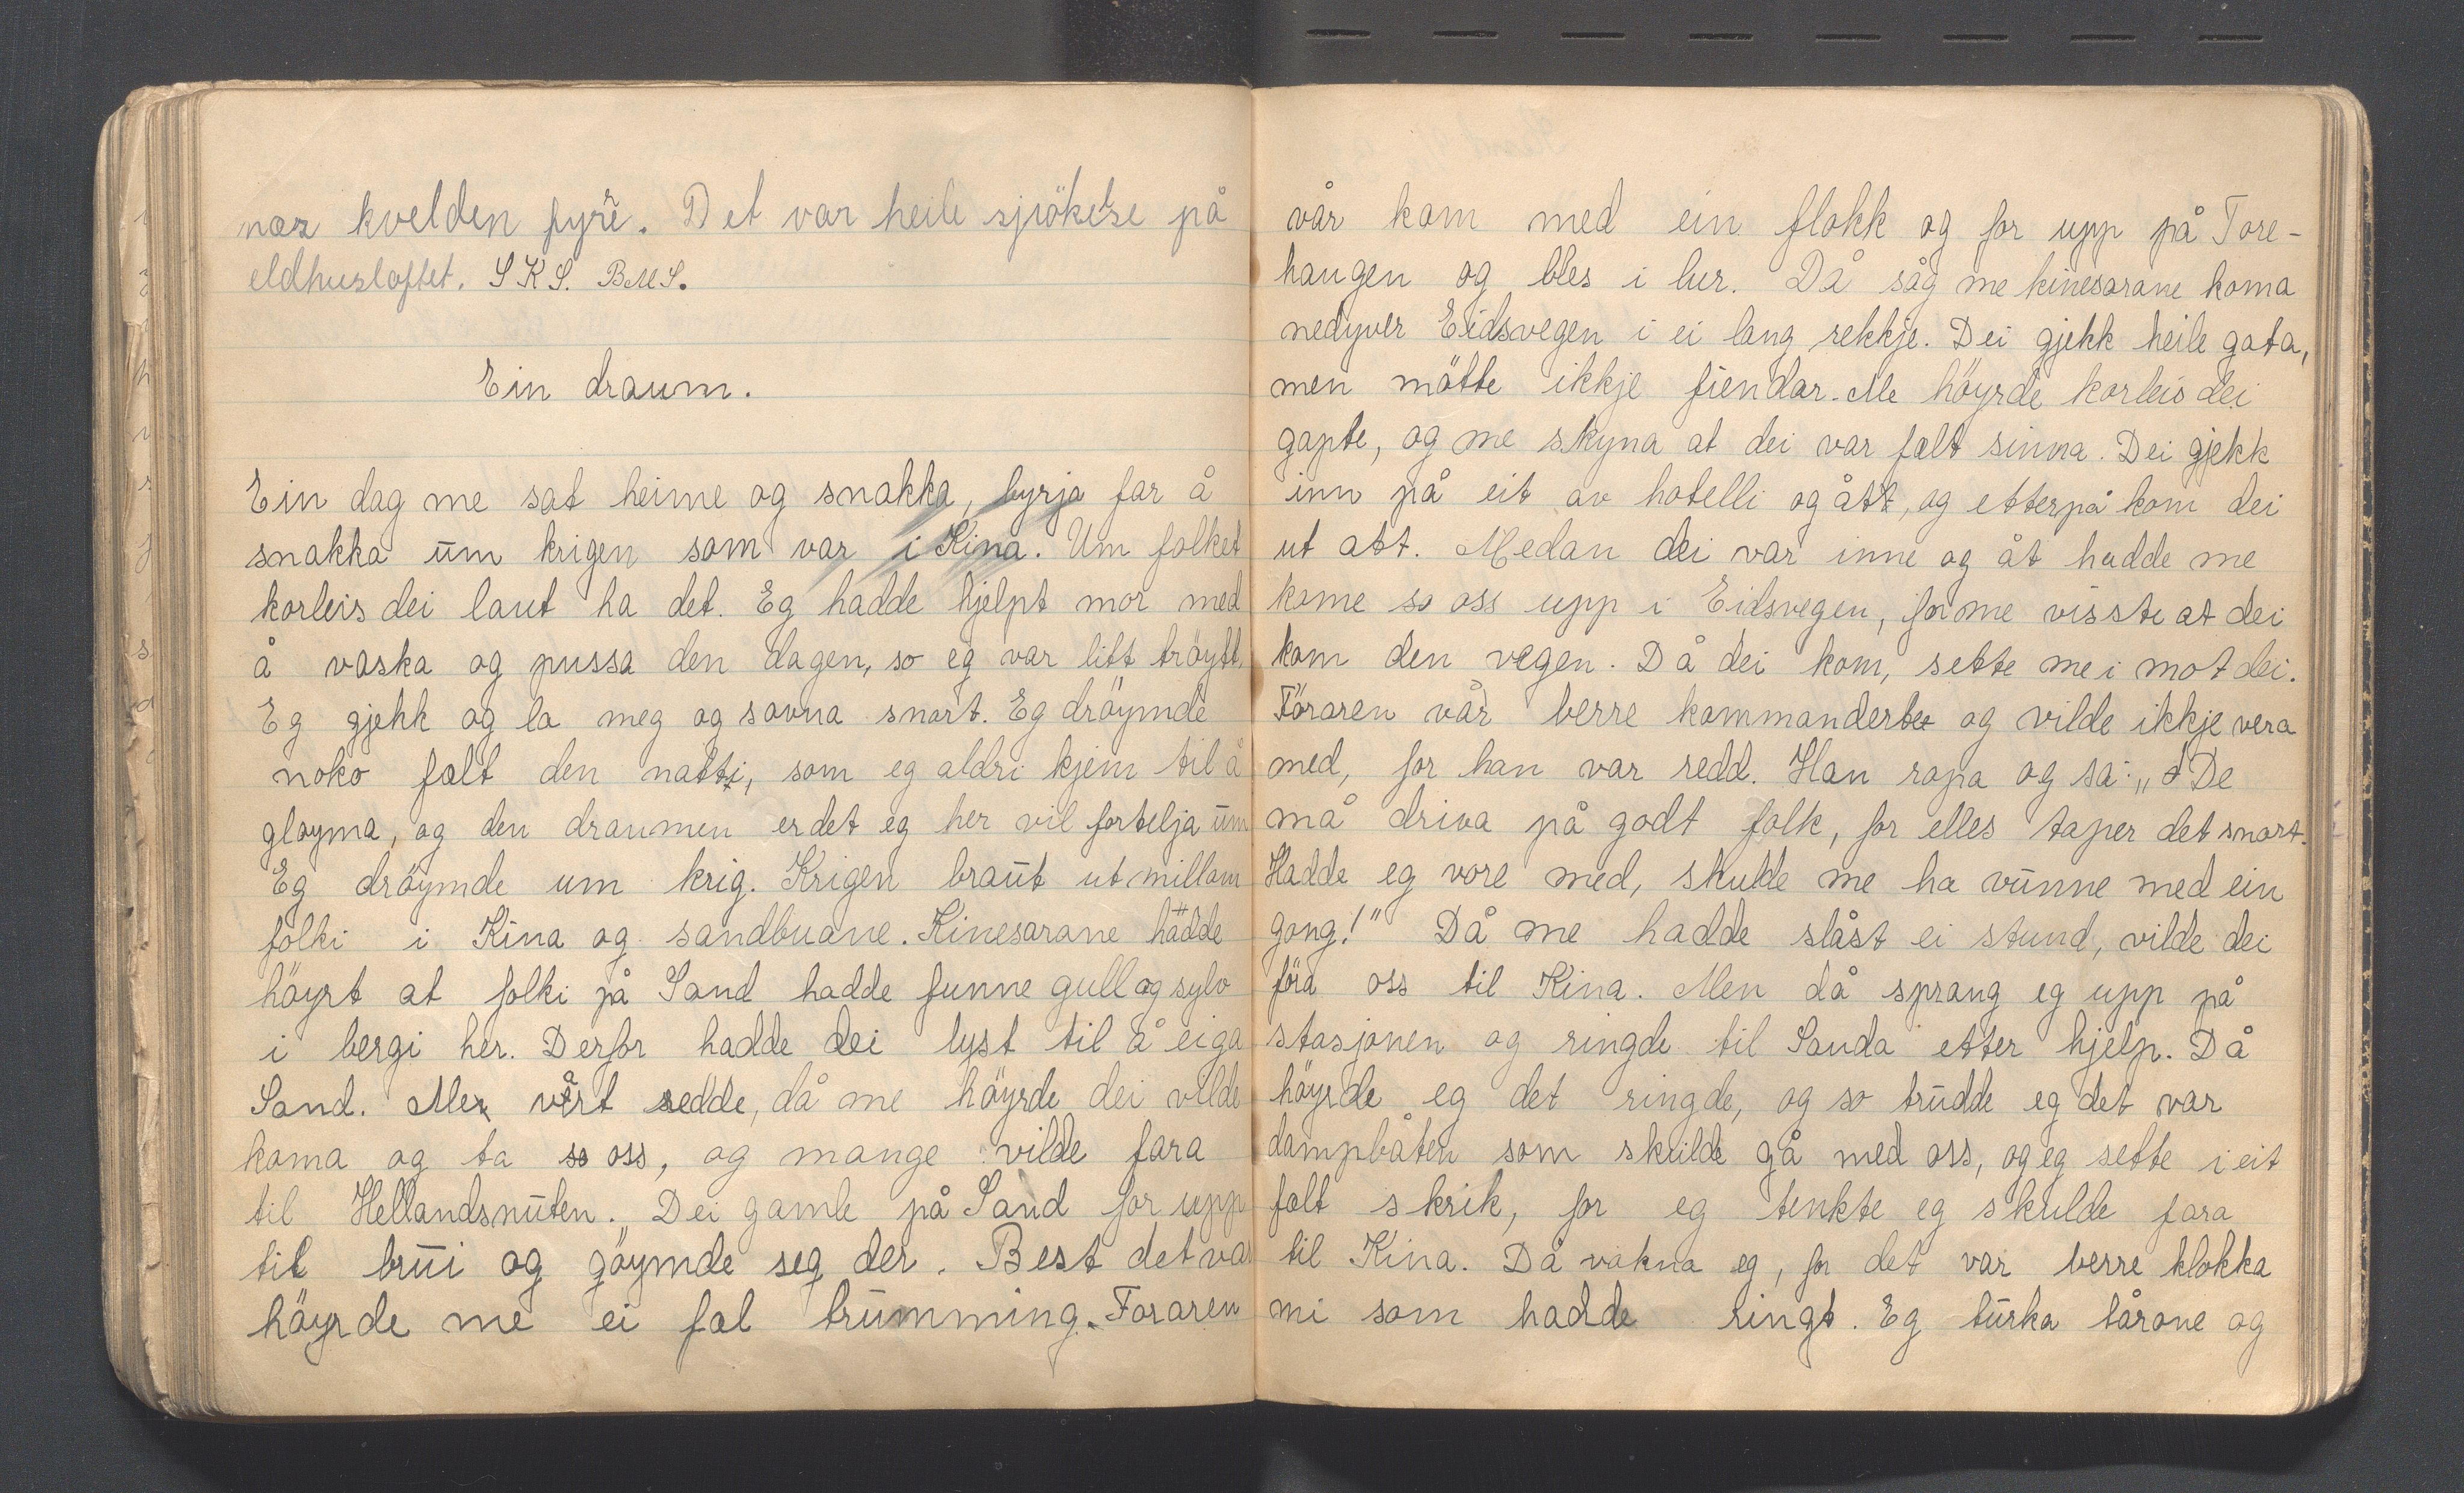 nær kvelden fyre. Det var heile sjröketse på
eldhusloftet. S K S. B M S.
Ein draum.
Ein dag me sat heime og snakka, byrja far å
snakka um krigen som var i Kina. Um folket
korleis dei laut ha det. Eg hadde hjelpt mor med
å vaska og pussa den dagen, so eg var litt tröytt.
Eg gjekk og la meg og sovna snart. Eg dröymde
noko fælt den natti, som eg aldri kjem til å
gløyma, og den draumen er det eg her vil fortelja um
Eg dröymde um krig. Krigen braut ut millom
folki i Kina og sandbuane. Kinesarane hadde
höyrt at folki på Sand hadde funne gull og sylv
i bergi her. Derfor hadde dei lyst til å eiga
Sand. Me vårt redde, då me höyrde dei vilde
koma og ta so oss, og mange vilde fara
til Hellandsnuten. Dei gamle på Sand for upp
til brui og göymde seg der. Best det var
höyrde me ei fæl trumming. Foraren
vår kom med ein flokk og for upp på Tore-
haugen og bles i lur. Då såg me kinesarane koma
nedyver Eidsvegen i ei lang rekkje. Dei gjekk heile gata,
men mötte ikkje fiendar. Me höyrde korleis dei
gapte, og me skyna at dei var fælt sinna. Dei gjekk
inn på eit av hotelli og ått, og etterpå kom dei
ut att. Medan dei var inne og åt hadde me
kome so oss upp i Eidsvegen, for me visste at dei
kom den vegen. Då dei kom, sette me i mot dei.
Föraren vår berre kommanderte og vilde ikkje vera
med, for han var redd. Han ropa og sa: „De
må driva på godt folk, for elles taper det snart.
Hadde eg vore med, skulde me ha vunne med ein
gong!" Då me hadde slåst ei stund, vilde dei
föra oss til Kina. Men då sprang eg upp på
stasjonen og ringde til Sauda etter hjelp. Då
höyrde eg det ringde, og so trudde eg det var
dampbåten som skulde gå med oss, og eg sette i eit
fælt skrik, for eg tenkte eg skulde fara
til Kina. Då vakna eg, for det var berre klokka
mi som hadde ringt. Eg turka tårone og